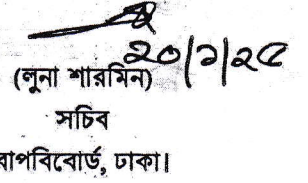 ২০/১/২৫
(লুনা শারমিন)
সচিব
বাপবিবোর্ড, ঢাকা।